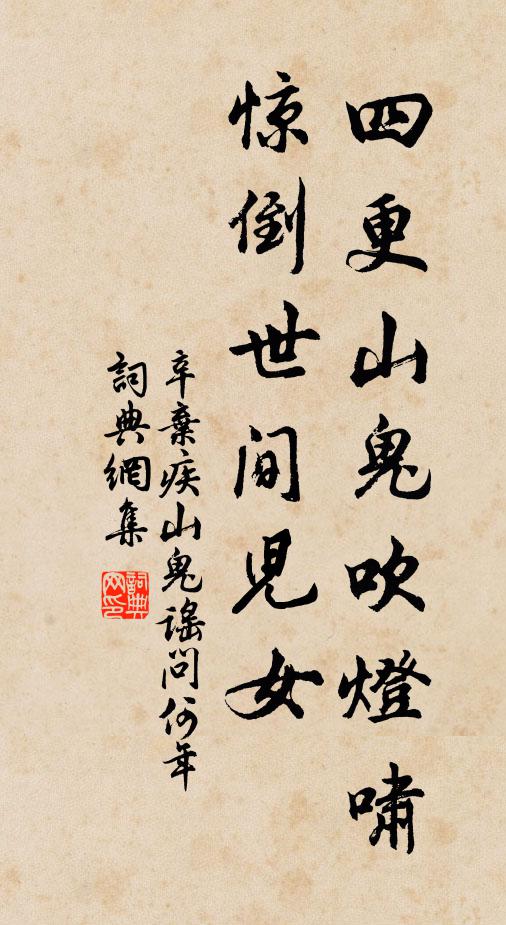 四更山鬼吹燈嘯
惊倒世间児女
辛棄疾山鬼謠問何年
詞典網集
詞典网印